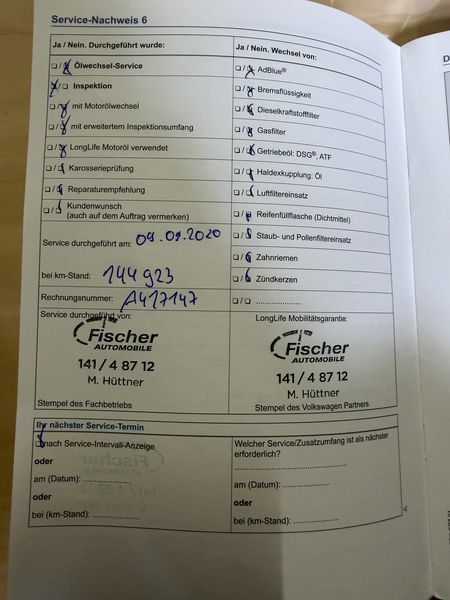 Service-Nachweis 6
Ja / Nein. Durchgeführt wurde:
Ölwechsel-Service
Inspektion
mit Motorölwechsel
mit erweitertem Inspektionsumfang
LongLife Motoröl verwendet
Karosserieprüfung
Reparaturempfehlung
Kundenwunsch
(auch auf dem Auftrag vermerken)
Service durchgeführt am: 09.01.2020
bei km-Stand: 144 923
Rechnungsnummer: A417147
Service durchgeführt von:
Fischer
AUTOMOBILE
141 / 4 87 12
M. Hüttner
Stempel des Fachbetriebs
Ja / Nein. Wechsel von:
AdBlue®
Bremsflüssigkeit
Dieselkraftstofffilter
Gasfilter
Getriebeöl: DSG®, ATF
Haldexkupplung: Öl
Luftfiltereinsatz
Reifenfüllflasche (Dichtmittel)
Staub- und Pollenfiltereinsatz
Zahnriemen
Zündkerzen
LongLife Mobilitätsgarantie:
Fischer
AUTOMOBILE
141 / 4 87 12
M. Hüttner
Stempel des Volkswagen Partners
Ihr nächster Service-Termin
nach Service-Intervall-Anzeige
oder
am (Datum):
oder
bei (km-Stand):
Welcher Service/Zusatzumfang ist als nächster
erforderlich?
am (Datum):
oder
bei (km-Stand):